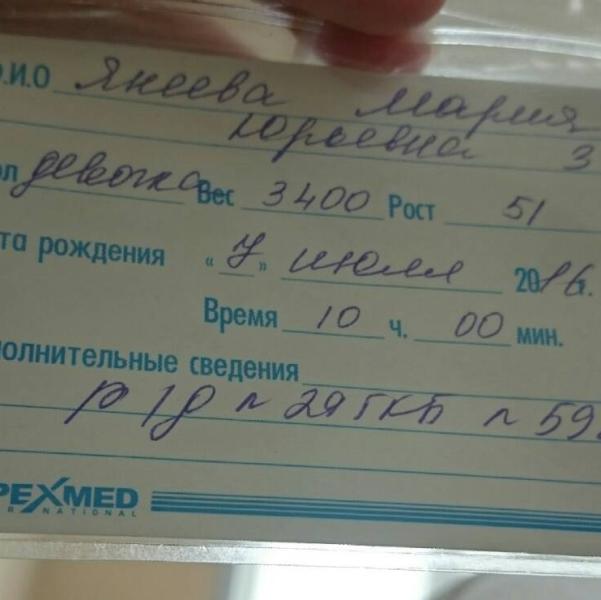 Ф.И.О Янеева Мария
Юрьевна 3
ол девочка Вес 3400 Рост 51
та рождения
« 7 » июля 2016г.
Время 10 ч. 00 мин.
полнительные сведения
р 1g n 29 ГКБ n 59
PEXMED